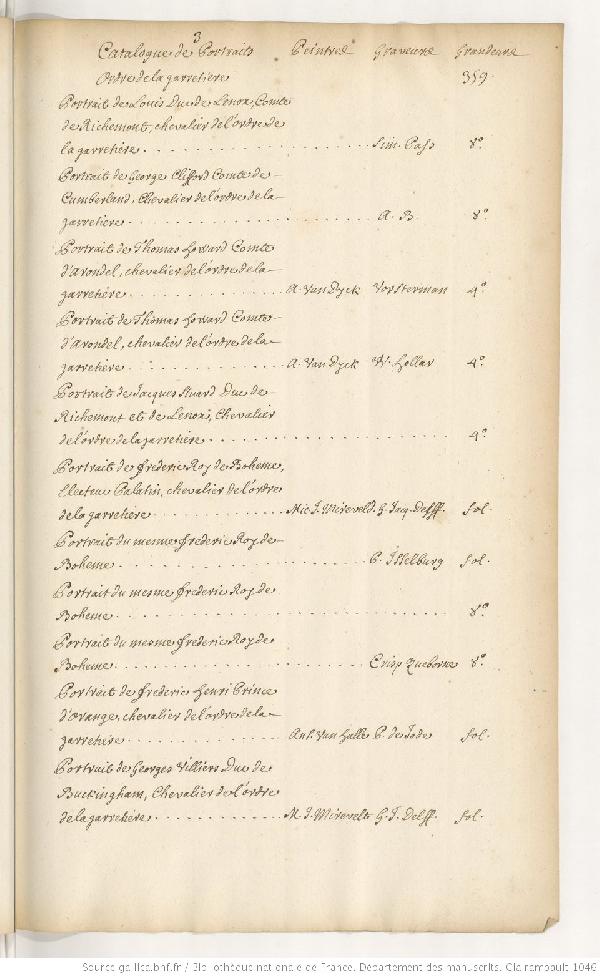 3
Catalogue de Portraits Peintres Graveurs Grandeurs
Ordre de la garretiere 359.
Portrait de Louis Duc de Lenox, Comte
de Richemont, chevalier de l'ordre de
la garretiére . . . . . Sim. Pass 8º.
Portrait de George Clifford Comte de
Cumberland, Chevalier de l'ordre de la
garretiere . . . . . A. B. 8º.
Portrait de Thomas howard Comte
d'Arondel, chevalier de l'ordre de la
garretiére . . . . . A. Van Dyck Vorsterman 4º.
Portrait de Thomas howard Comte
d'Arondel, chevalier de l'ordre de la
garretiére . . . . . A. Van Dyck W. Hollar 4º.
Portrait de Jacques Stuard Duc de
Richemont et de Lenox, Chevalier
de l'ordre de la garretiére . . . . . 4º.
Portrait de frederic Roy de Boheme,
Electeur Palatin, chevalier de l'ordre
de la garretiére . . . . . Mic. J. Mireveld. G. Jacq. Delff. fol.
Portrait du mesme frederic Roy de
Boheme . . . . . P. Isselburg fol.
Portrait du mesme frederic Roy de
Boheme . . . . . 8º.
Portrait du mesme frederic Roy de
Boheme . . . . . Crisp. Queborne 8º.
Portrait de frederic henri Prince
d'orange, chevalier de l'ordre de la
garretiére . . . . . Ant. Van halle P. de Jode fol.
Portrait de Georges Villiers Duc de
Buckingham, Chevalier de l'ordre
de la garretiére . . . . . M. J. Mirevelt G. J. Delff. fol.
Source gallica.bnf.fr / Bibliothèque nationale de France. Département des manuscrits. Clairambault 1046